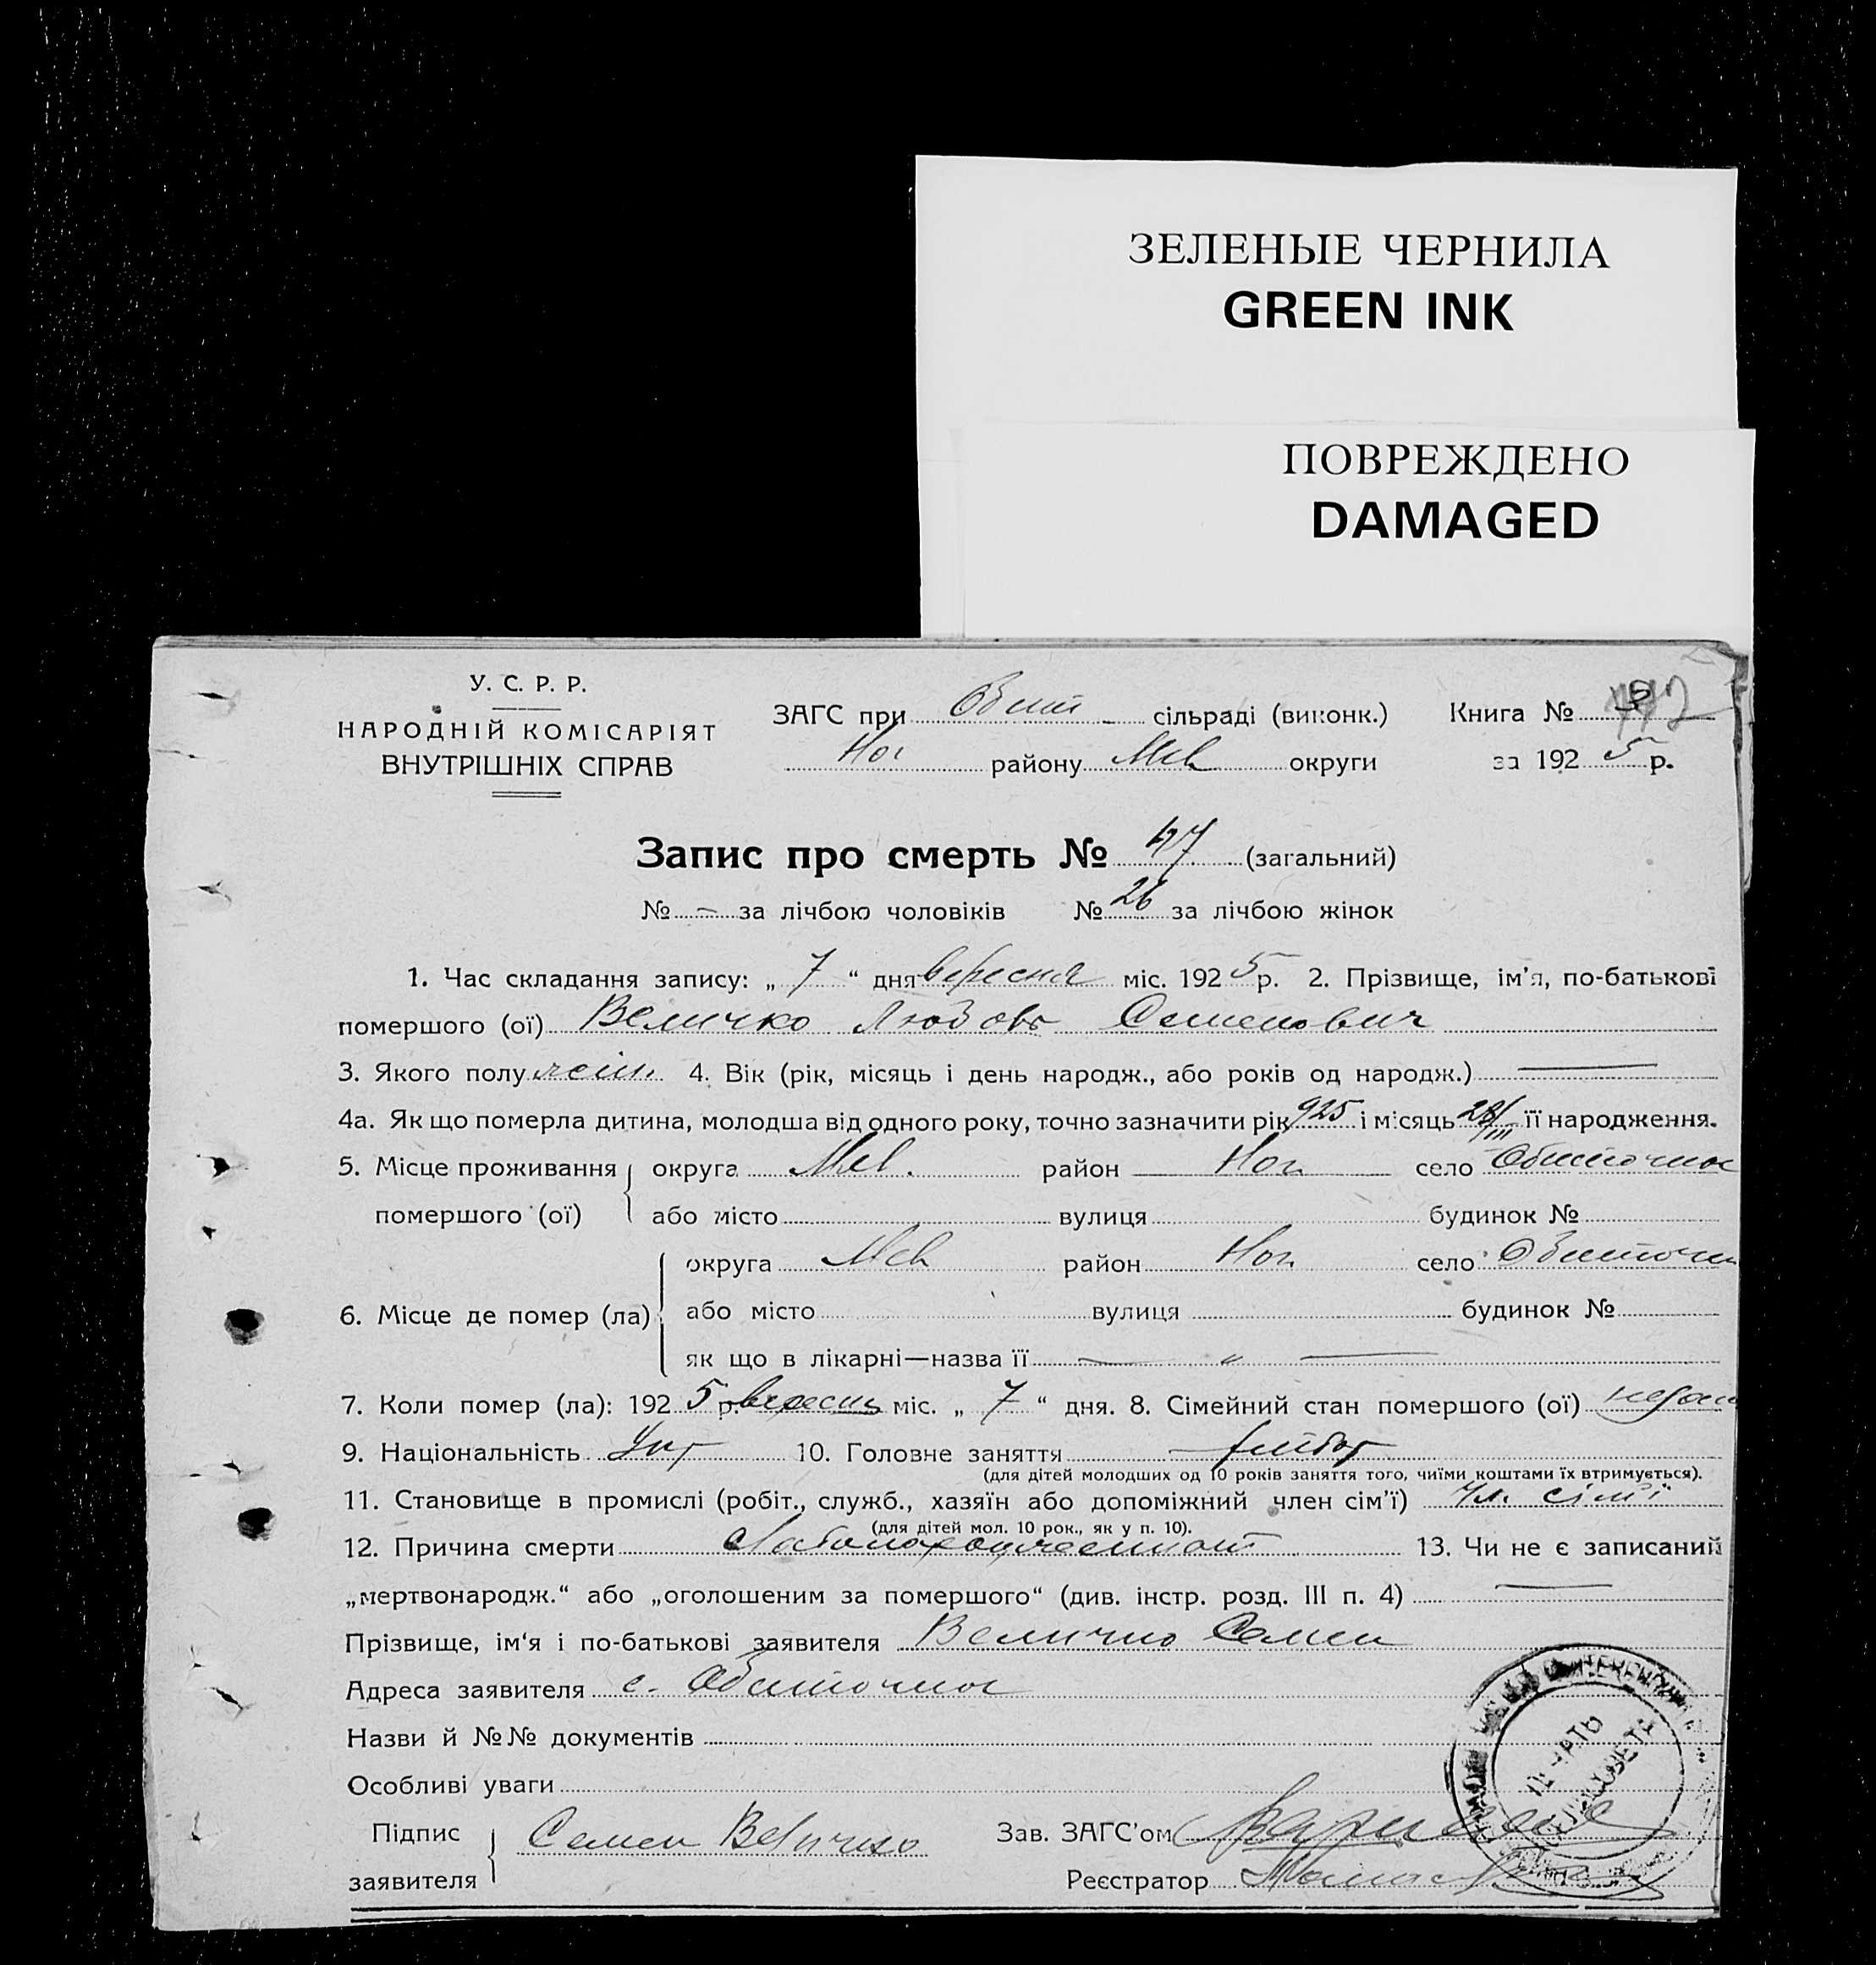 ЗЕЛЕНЫЕ ЧЕРНИЛА
GREEN INK
ПОВРЕЖДЕНО
DAMAGED
У. С. Р. Р.
НАРОДНІЙ КОМІСАРІЯТ
ВНУТРІШНІХ СПРАВ
ЗАГС при Обит сільраді (виконк.) Книга №
Ног району Мел округи за 1925 р.
Запис про смерть № 47 (загальний)
№ – за лічбою чоловіків № 26 за лічбою жінок
1. Час складання запису: „ 7 “ дня вересня міс. 1925 р. 2. Прізвище, ім’я, по-батькові
помершого (ої) Величко Любовь Семенович
3. Якого полу жін. 4. Вік (рік, місяць і день народж., або років од народж.) —
4а. Як що померла дитина, молодша від одного року, точно зазначити рік 925 і місяць 28/III її народження.
5. Місце проживання округа Мел. район Ног. село Обиточное
помершого (ої) або місто вулиця будинок №
округа Мел район Ног. село Обиточн
6. Місце де помер (ла) або місто вулиця будинок №
як що в лікарні—назва її — „ —
7. Коли помер (ла): 1925 р. вересня міс. „ 7 “ дня. 8. Сімейний стан помершого (ої)
9. Національність Укр 10. Головне заняття хлібор
(для дітей молодших од 10 років заняття того, чиїми коштами їх втримується).
11. Становище в промислі (робіт., служб., хазяїн або допоміжний член сім’ї) Чл. сім’ї
(для дітей мол. 10 рок., як у п. 10).
12. Причина смерти 13. Чи не є записаний
„мертвонародж.“ або „оголошеним за помершого“ (див. інстр. розд. III п. 4) —
Прізвище, ім‘я і по-батькові заявителя Величко Семен
Адреса заявителя с. Обиточное
Назви й №№ документів
Особливі уваги
Підпис Семен Величко Зав. ЗАГС’ом
заявителя Реєстратор
ПЕЧАТЬ